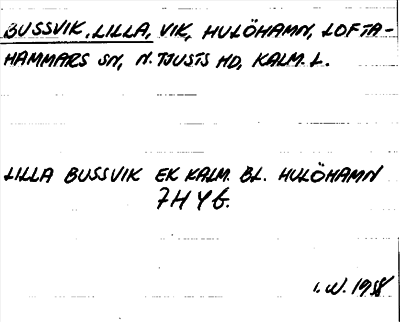 BUSSVIK, LILLA, VIK, HULÖHAMN, LOFTA-
HAMMARS SN, N. TJUSTS HD, KALM. L.
LILLA BUSSVIK EK KALM. BL. HULÖHAMN
7H Y G.
I. W. 1958